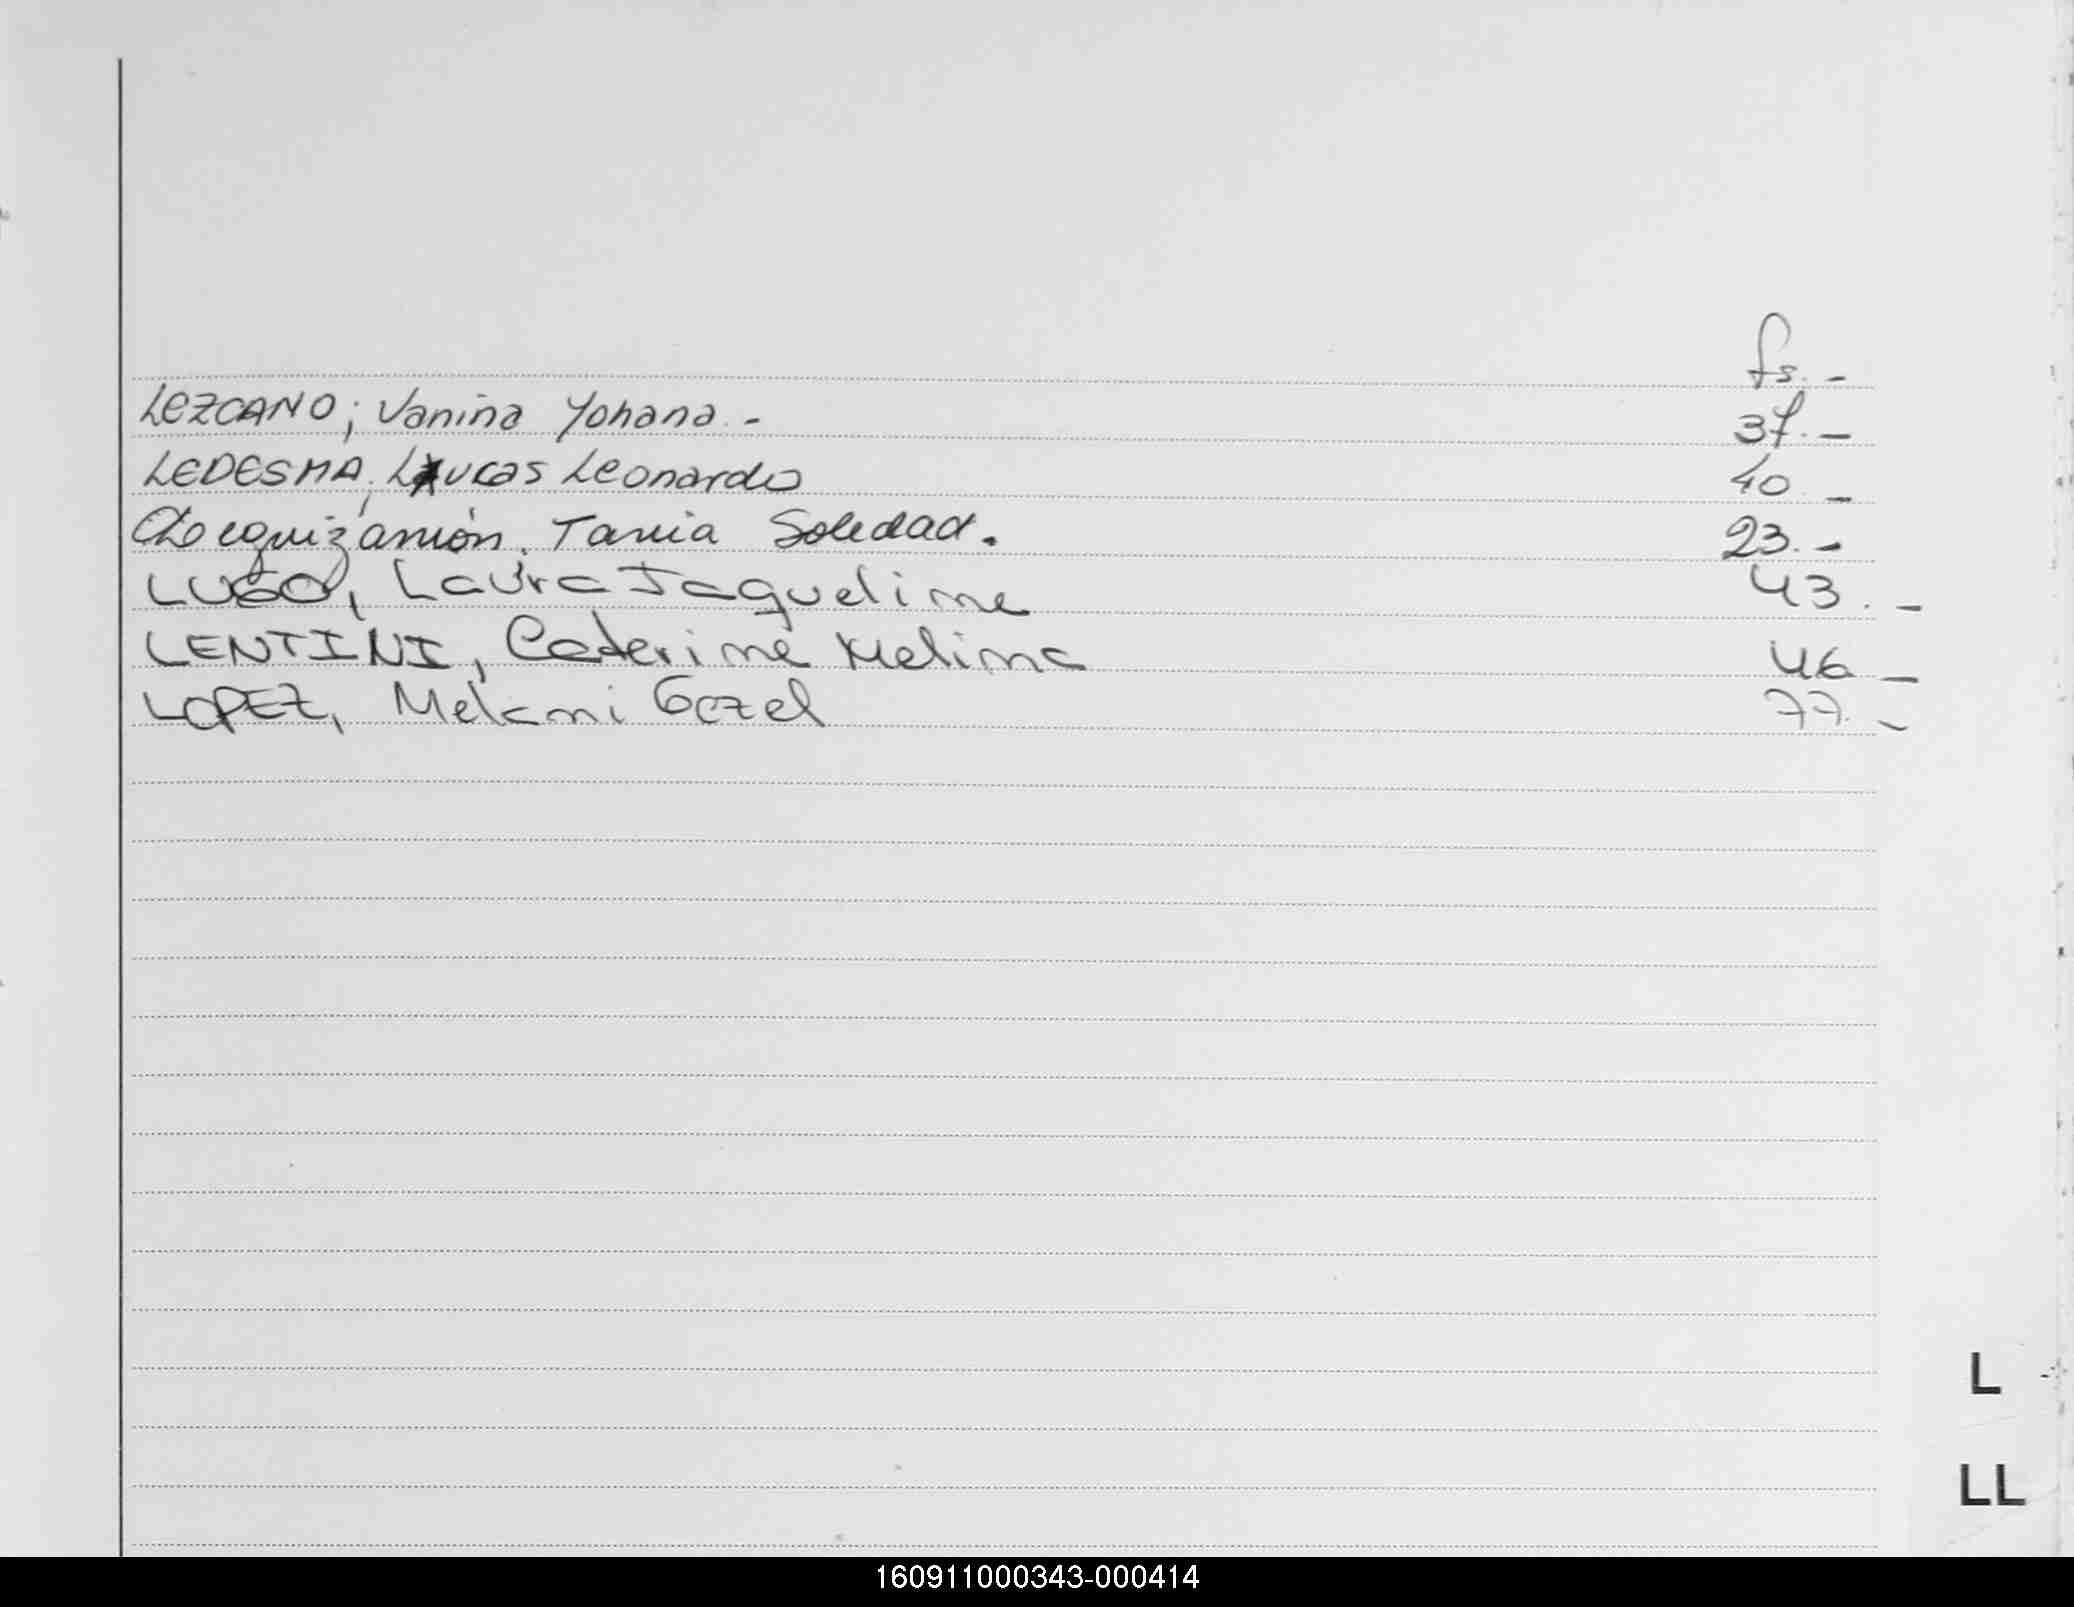 fs.-
LEZCANO; Vanina Yohana.- 37.-
LEDESMA, Lucas Leonardo 40.-
Loeguizamón, Tania Soledad. 23.-
LUGO, Laura Jaqueline 43.-
LENTINI, Caterine Melina 46-
LOPEZ, Melani Gezel 77.-
L
LL
160911000343-000414